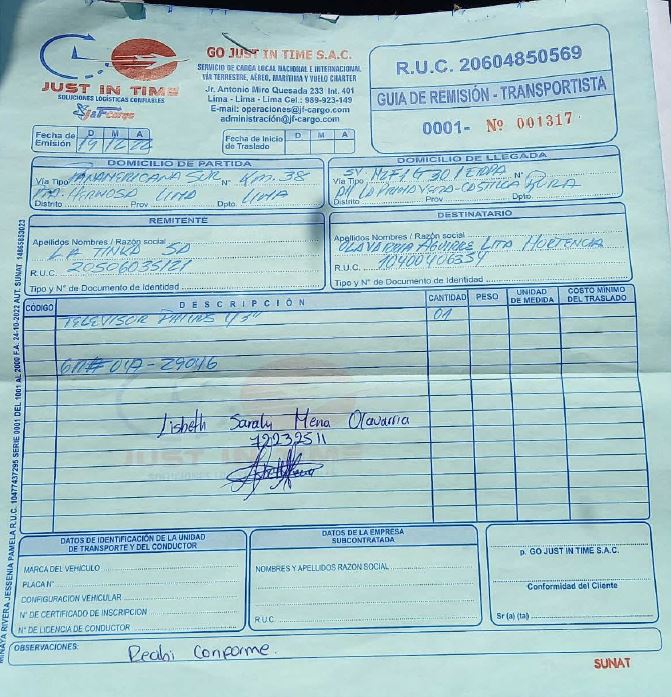 JUST IN TIME
SOLUCIONES LOGÍSTICAS CONFIABLES
J&Fcargo
GO JUST IN TIME S.A.C.
SERVICIO DE CARGA LOCAL NACIONAL E INTERNACIONAL
VÍA TERRESTRE, AÉREO, MARÍTIMA Y VUELO CHARTER
Jr. Antonio Miro Quesada 233 Int. 401
Lima - Lima - Lima Cel.: 989-923-149
E-mail: operaciones@jf-cargo.com
administración@jf-cargo.com
R.U.C. 20604850569
GUIA DE REMISIÓN - TRANSPORTISTA
0001- Nº 001317
Fecha de Emisión D M A
19/12/22
Fecha de Inicio de Traslado D M A
DOMICILIO DE PARTIDA
Vía Tipo PANAMERICANA SUR N° Km. 38
HERMOSA LIMA LIMA
Distrito Prov Dpto.
DOMICILIO DE LLEGADA
Vía Tipo N°
Distrito Prov Dpto.
REMITENTE
Apellidos Nombres / Razón social
LA TINKA SA
R.U.C. 20506035121
Tipo y N° de Documento de Identidad
DESTINATARIO
Apellidos Nombres / Razón social
OLAVARRIA AGUIRRE LITA HORTENCIA
R.U.C. 10400406334
Tipo y N° de Documento de Identidad
CÓDIGO DESCRIPCIÓN CANTIDAD PESO UNIDAD DE MEDIDA COSTO MÍNIMO DEL TRASLADO
TELEVISOR 43" 01
29046
Lisbeth Saraly Mena Olavarria
72232511
JUST IN TIME
DATOS DE IDENTIFICACIÓN DE LA UNIDAD
DE TRANSPORTE Y DEL CONDUCTOR
MARCA DEL VEHICULO
PLACA N°
CONFIGURACION VEHICULAR
N° DE CERTIFICADO DE INSCRIPCION
N° DE LICENCIA DE CONDUCTOR
DATOS DE LA EMPRESA
SUBCONTRATADA
NOMBRES Y APELLIDOS RAZON SOCIAL
R.U.C.
p. GO JUST IN TIME S.A.C.
Conformidad del Cliente
Sr (a) (ta)
OBSERVACIONES: Recibi conforme.
SUNAT
MINAYA RIVERA JESSENIA PAMELA R.U.C. 10477437295 SERIE 0001 DEL 1001 AL 2000 F.A. 24-10-2022 AUT. SUNAT 14865853023